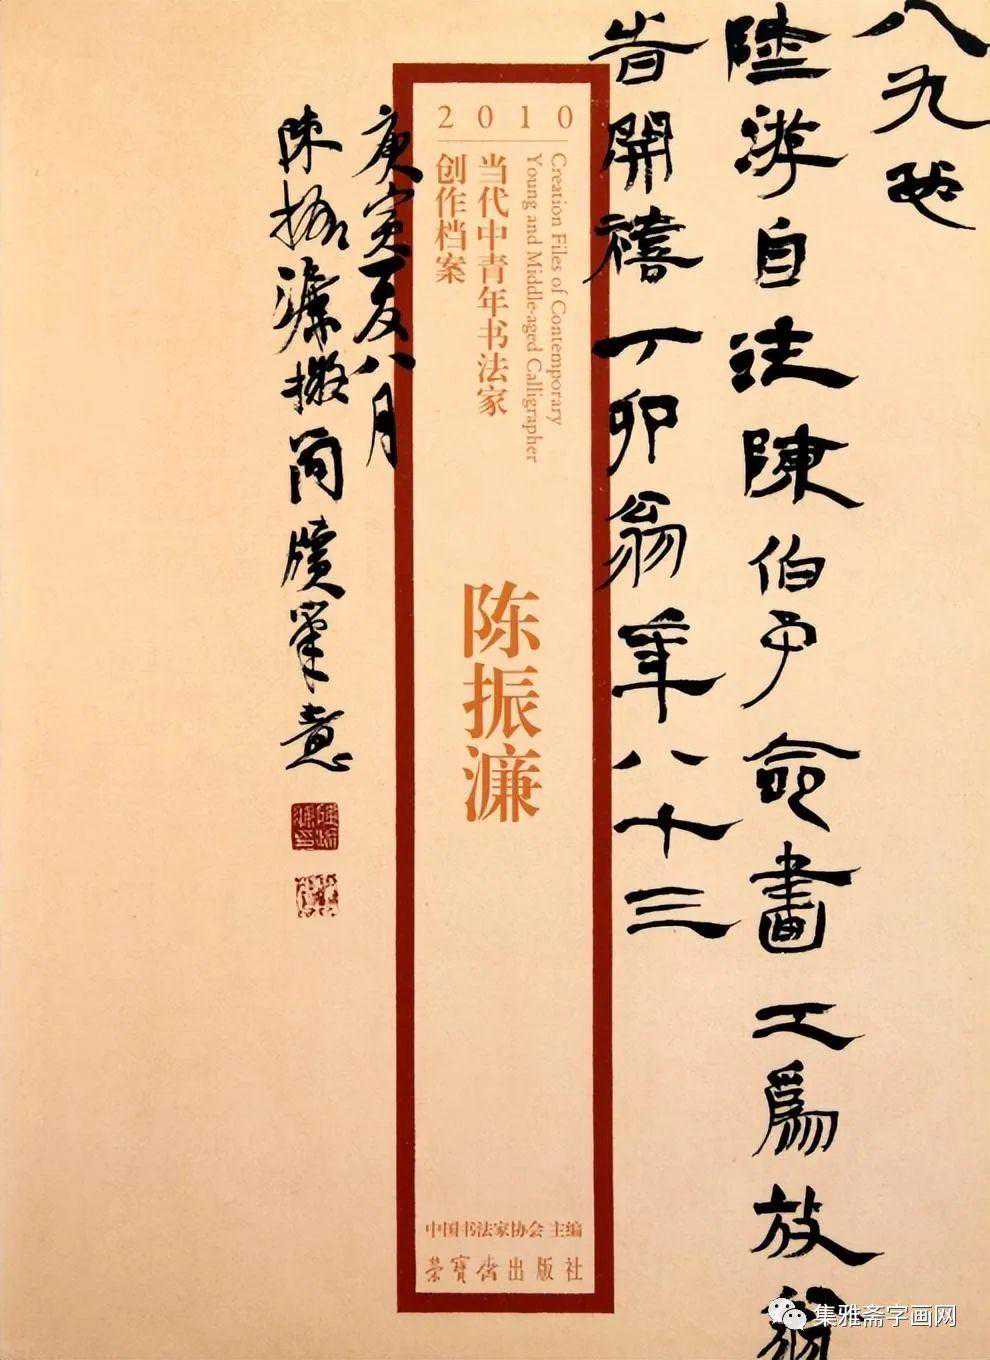 八九也
陸游自注陳伯予命畫工爲放翁
旹開禧丁卯翁年八十三
2010
Creation Files of Contemporary
Young and Middle-aged Calligrapher
当代中青年书法家
创作档案
陈振濂
中国书法家协会 主编
荣宝斋出版社
庚寅夏八月
陳振濂擬簡牘筆意
集雅斋字画网